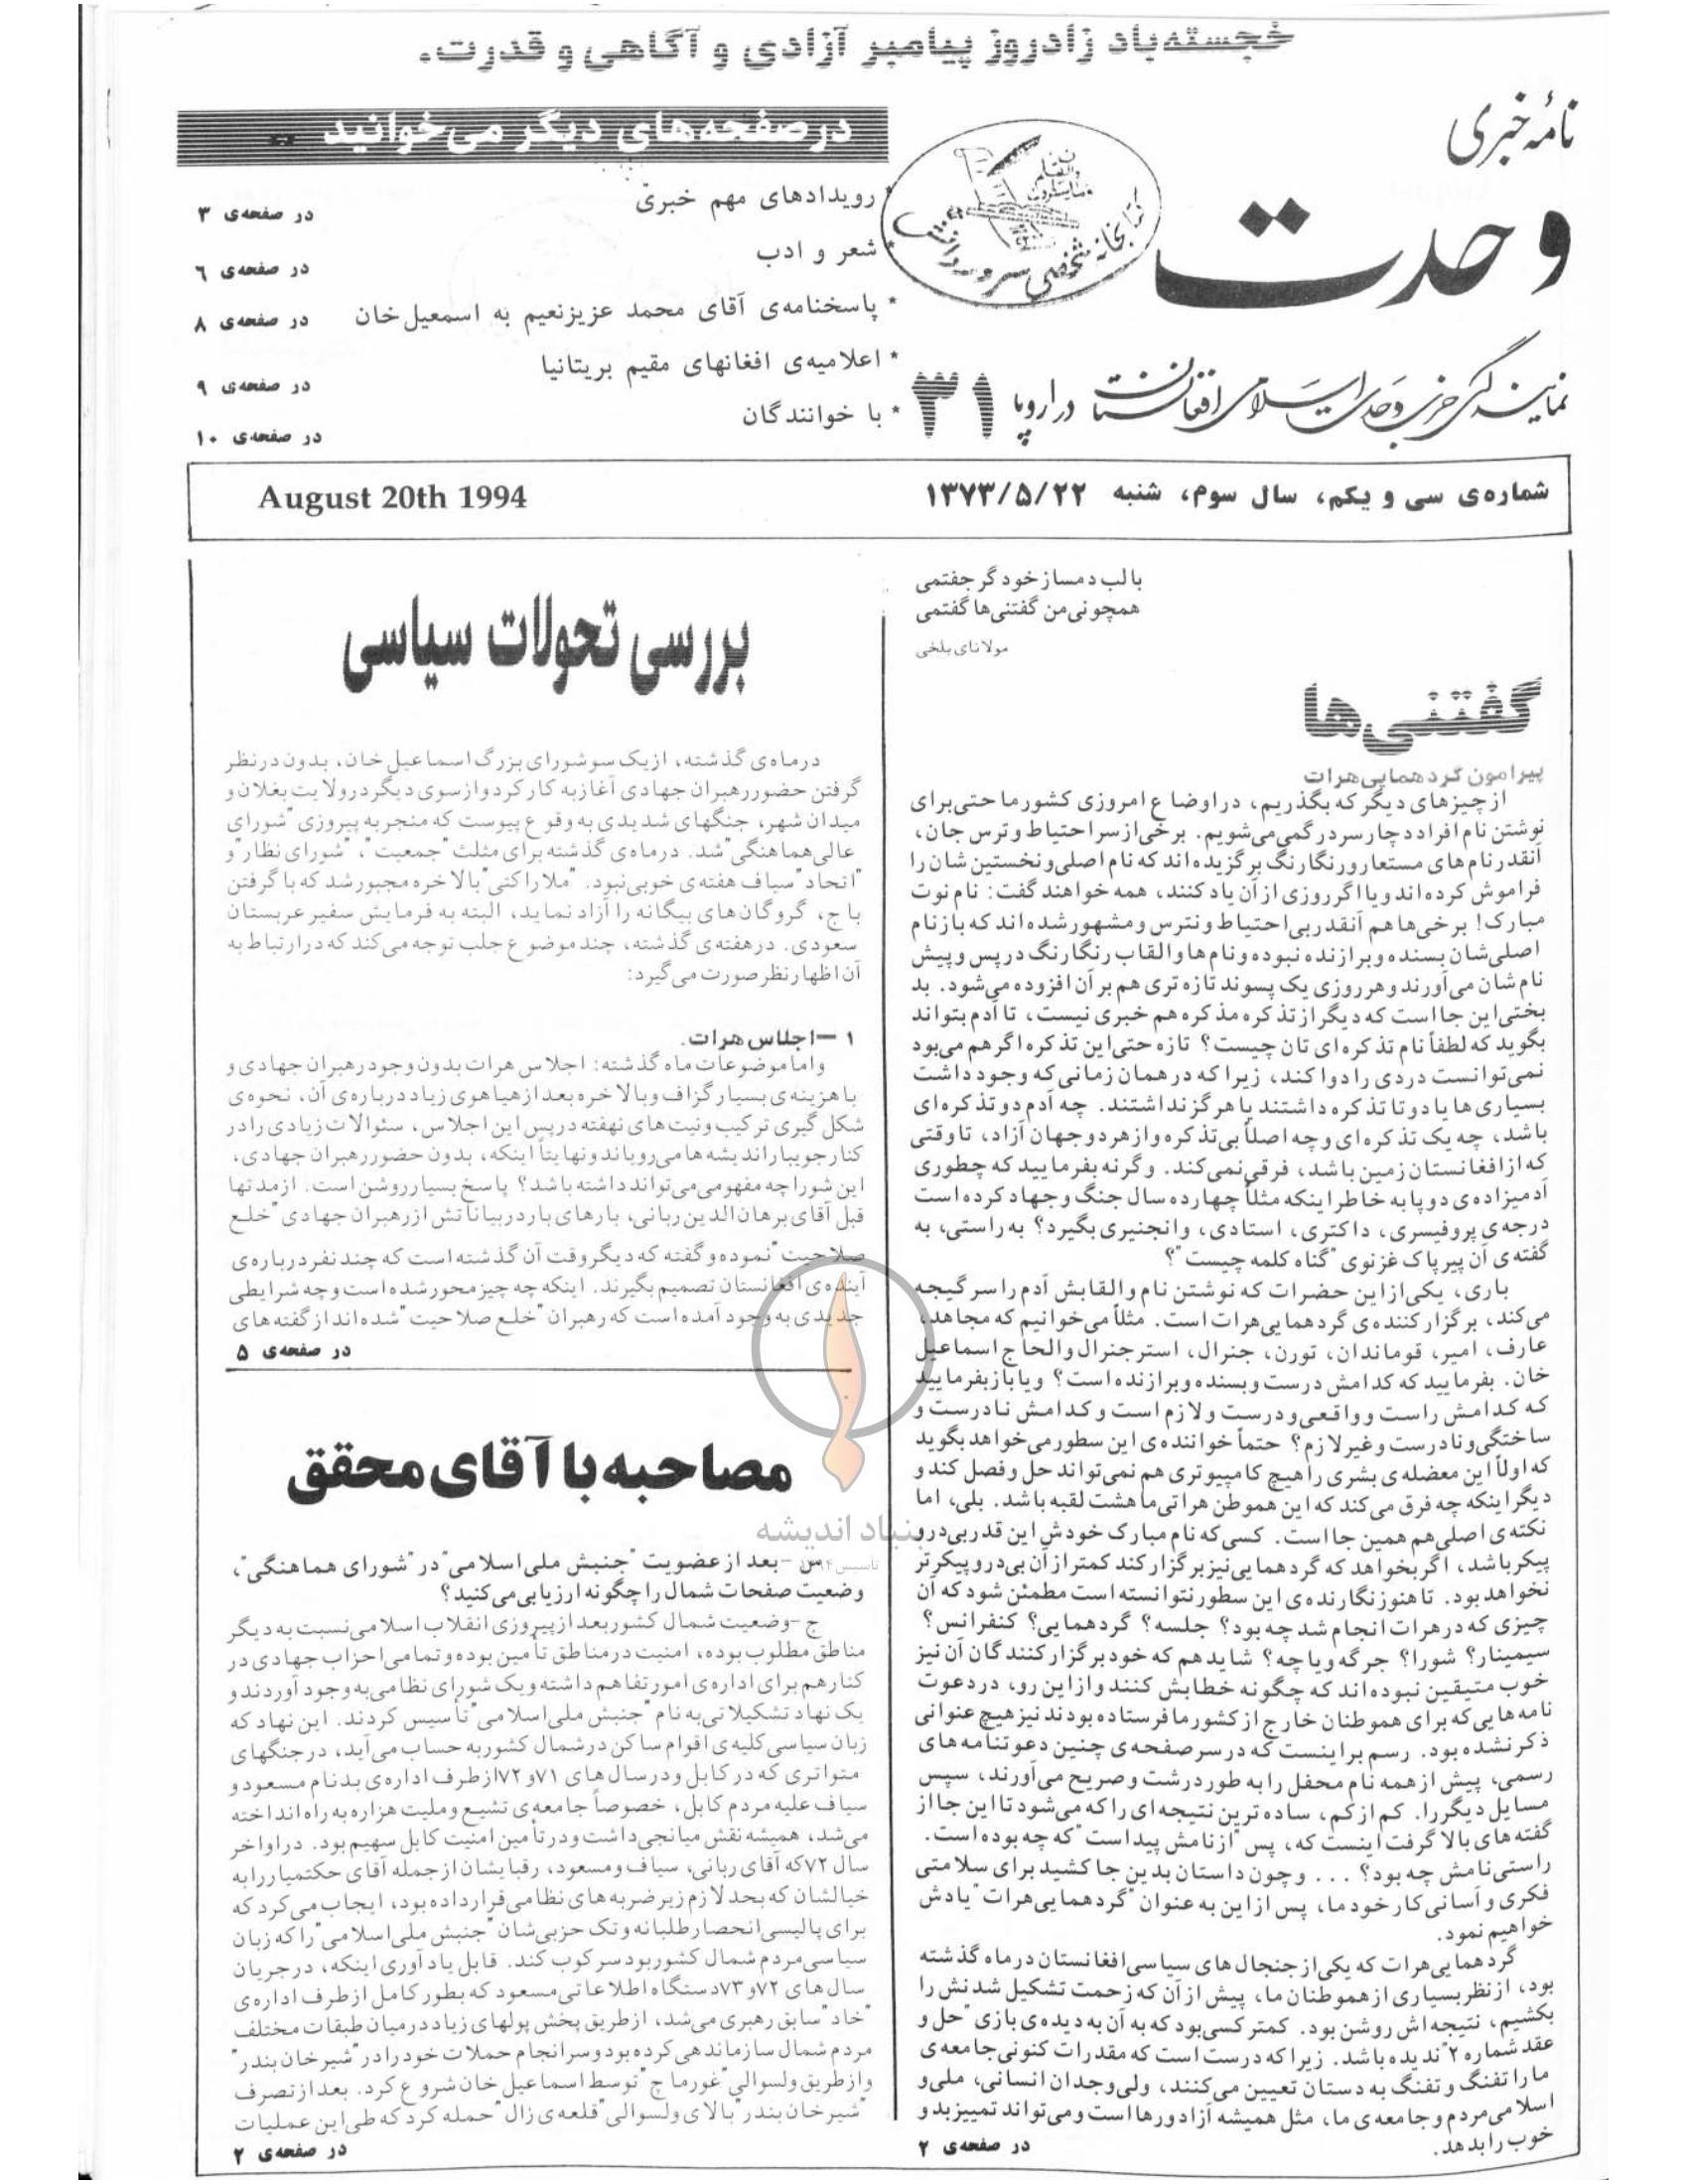 خجسته‌باد زادروز پیامبر آزادی و آگاهی و قدرت.
نامهٔ خبری
وحدت
نمایندگی حزب وحدت اسلامی افغانستان در اروپا ۳۱
ن والقلم و مایسطرون
کتابخانه شخصی سرور دانش
درصفحه‌های دیگر می‌خوانید
* رویدادهای مهم خبری در صفحه‌ی ۳
* شعر و ادب در صفحه‌ی ۶
* پاسخنامه‌ی آقای محمد عزیزنعیم به اسمعیل‌خان در صفحه‌ی ۸
* اعلامیه‌ی افغانهای مقیم بریتانیا در صفحه‌ی ۹
* با خوانندگان در صفحه‌ی ۱۰
شماره‌ی سی و یکم، سال سوم، شنبه ۱۳۷۳/۵/۲۲
August 20th 1994
با لب دمساز خود گر جفتمی
همچو نی من گفتنی‌ها گفتمی
مولانای بلخی
گفتنی‌ها
پیرامون گردهمایی هرات
از چیزهای دیگر که بگذریم، در اوضاع امروزی کشور ما حتی برای
نوشتن نام افراد دچار سردرگمی می‌شویم. برخی از سر احتیاط و ترس جان،
آنقدر نام‌های مستعار و رنگارنگ برگزیده‌اند که نام اصلی و نخستین شان را
فراموش کرده‌اند و یا اگر روزی از آن یاد کنند، همه خواهند گفت: نام نوت
مبارک! برخی‌ها هم آنقدر بی‌احتیاط و نترس و مشهور شده‌اند که باز نام
اصلی‌شان بسنده و برازنده نبوده و نام‌ها و القاب رنگارنگ در پس و پیش
نام شان می‌آورند و هر روزی یک پسوند تازه تری هم بر آن افزوده می‌شود. بد
بختی این جا است که دیگر از تذکره مذکره هم خبری نیست، تا آدم بتواند
بگوید که لطفاً نام تذکره‌ای تان چیست؟ تازه حتی این تذکره اگر هم می‌بود
نمی‌توانست دردی را دوا کند، زیرا که در همان زمانی که وجود داشت
بسیاری‌ها یا دوتا تذکره داشتند یا هرگز نداشتند. چه آدم دو تذکره‌ای
باشد، چه یک تذکره‌ای و چه اصلاً بی‌تذکره و از هر دو جهان آزاد، تا وقتی
که از افغانستان زمین باشد، فرقی نمی‌کند. وگرنه بفرمایید که چطوری
آدمیزاده‌ی دو پا به خاطر اینکه مثلاً چهارده سال جنگ و جهاد کرده است
درجه‌ی پروفیسری، داکتری، استادی، و انجنیری بگیرد؟ به راستی، به
گفته‌ی آن پیر پاک غزنوی "گناه کلمه چیست"؟
باری، یکی از این حضرات که نوشتن نام و القابش آدم را سر گیجه
می‌کند، برگزار کننده‌ی گردهمایی هرات است. مثلاً می‌خوانیم که مجاهد،
عارف، امیر، قوماندان، تورن، جنرال، استر جنرال و الحاج اسماعیل
خان. بفرمایید که کدامش درست و بسنده و برازنده است؟ و یا باز بفرمایید
که کدامش راست و واقعی و درست و لازم است و کدامش نادرست و
ساختگی و نادرست و غیر لازم؟ حتماً خواننده‌ی این سطور می‌خواهد بگوید
که اولاً این معضله‌ی بشری را هیچ کامپیوتری هم نمی‌تواند حل و فصل کند و
دیگر اینکه چه فرق می‌کند که این هموطن هراتی ما هشت لقبه باشد. بلی، اما
نکته‌ی اصلی هم همین جا است. کسی که نام مبارک خودش این قدر بی‌در و
پیکر باشد، اگر بخواهد که گردهمایی نیز برگزار کند کمتر از آن بی‌در و پیکر تر
نخواهد بود. تا هنوز نگارنده‌ی این سطور نتوانسته است مطمئن شود که آن
چیزی که در هرات انجام شد چه بود؟ جلسه؟ گردهمایی؟ کنفرانس؟
سیمینار؟ شورا؟ جرگه و یا چه؟ شاید هم که خود برگزار کنندگان آن نیز
خوب متیقین نبوده‌اند که چگونه خطابش کنند و از این رو، در دعوت
نامه‌هایی که برای هموطنان خارج از کشور ما فرستاده بودند نیز هیچ عنوانی
ذکر نشده بود. رسم بر اینست که در سر صفحه‌ی چنین دعوتنامه‌های
رسمی، پیش از همه نام محفل را به طور درشت و صریح می‌آورند، سپس
مسایل دیگر را. کم از کم، ساده ترین نتیجه‌ای را که می‌شود تا این جا از
گفته‌های بالا گرفت اینست که، پس "از نامش پیداست" که چه بوده است.
راستی نامش چه بود؟ ... و چون داستان بدین جا کشید برای سلامتی
فکری و آسانی کار خود ما، پس از این به عنوان "گردهمایی هرات" یادش
خواهیم نمود.
گردهمایی هرات که یکی از جنجال‌های سیاسی افغانستان در ماه گذشته
بود، از نظر بسیاری از هموطنان ما، پیش از آن که زحمت تشکیل شدنش را
بکشیم، نتیجه‌اش روشن بود. کمتر کسی بود که به آن به دیده‌ی بازی "حل و
عقد شماره ۲" ندیده باشد. زیرا که درست است که مقدرات کنونی جامعه‌ی
ما را تفنگ و تفنگ به دستان تعیین می‌کنند، ولی وجدان انسانی، ملی و
اسلامی مردم و جامعه‌ی ما، مثل همیشه آزاد ورها است و می‌تواند تمییز بد و
خوب را بدهد.
در صفحه‌ی ۲
بررسی تحولات سیاسی
در ماه‌ی گذشته، از یک سو شورای بزرگ اسماعیل خان، بدون در نظر
گرفتن حضور رهبران جهادی آغاز به کار کرد و از سوی دیگر در ولایت بغلان و
میدان شهر، جنگهای شدیدی به وقوع پیوست که منجر به پیروزی "شورای
عالی هماهنگی" شد. در ماه‌ی گذشته برای مثلث "جمعیت"، "شورای نظار" و
"اتحاد" سیاف هفته‌ی خوبی نبود. "ملا راکتی" بالاخره مجبور شد که با گرفتن
باج، گروگان‌های بیگانه را آزاد نماید، البته به فرمایش سفیر عربستان
سعودی. در هفته‌ی گذشته، چند موضوع جلب توجه می‌کند که در ارتباط به
آن اظهار نظر صورت می‌گیرد:
۱ – اجلاس هرات.
و اما موضوعات ماه گذشته: اجلاس هرات بدون وجود رهبران جهادی و
با هزینه‌ی بسیار گزاف و بالاخره بعد از هیاهوی زیاد درباره‌ی آن، نحوه‌ی
شکل گیری ترکیب و نیت‌های نهفته در پس این اجلاس، سئوالات زیادی را در
کنار جویبار اندیشه‌ها می‌رویاند و نهایتاً اینکه، بدون حضور رهبران جهادی،
این شورا چه مفهومی می‌تواند داشته باشد؟ پاسخ بسیار روشن است. از مدتها
قبل آقای برهان الدین ربانی، بارهای بار در بیاناتش از رهبران جهادی "خلع
صلاحیت" نموده و گفته که دیگر وقت آن گذشته است که چند نفر درباره‌ی
آینده‌ی افغانستان تصمیم بگیرند. اینکه چه چیز محور شده است و چه شرایطی
جدیدی به وجود آمده است که رهبران "خلع صلاحیت" شده‌اند از گفته‌های
در صفحه‌ی ۵
مصاحبه با آقای محقق
س – بعد از عضویت "جنبش ملی اسلامی" در "شورای هماهنگی"،
وضعیت صفحات شمال را چگونه ارزیابی می‌کنید؟
ج – وضعیت شمال کشور بعد از پیروزی انقلاب اسلامی نسبت به دیگر
مناطق مطلوب بوده، امنیت در مناطق تأمین بوده و تمامی احزاب جهادی در
کنار هم برای اداره‌ی امور تفاهم داشته و یک شورای نظامی به وجود آوردند و
یک نهاد تشکیلاتی به نام "جنبش ملی اسلامی" تأسیس کردند. این نهاد که
زبان سیاسی کلیه‌ی اقوام ساکن در شمال کشور به حساب می‌آید، در جنگهای
متواتری که در کابل و در سال‌های ۷۱ و ۷۲ از طرف اداره‌ی بدنام مسعود و
سیاف علیه مردم کابل، خصوصاً جامعه‌ی تشیع و ملیت هزاره به راه انداخته
می‌شد، همیشه نقش میانجی داشت و در تأمین امنیت کابل سهیم بود. در اواخر
سال ۷۲ که آقای ربانی، سیاف و مسعود، رقبایشان از جمله آقای حکمتیار را به
خیالشان که بحد لازم زیر ضربه‌های نظامی قرار داده بود، ایجاب می‌کرد که
برای پالیسی انحصار طلبانه و تک حزبی شان "جنبش ملی اسلامی" را که زبان
سیاسی مردم شمال کشور بود سرکوب کند. قابل یاد آوری اینکه، در جریان
سال‌های ۷۲ و ۷۳ دستگاه اطلاعاتی مسعود که بطور کامل از طرف اداره‌ی
"خاد" سابق رهبری می‌شد، از طریق پخش پولهای زیاد در میان طبقات مختلف
مردم شمال سازماندهی کرده بود و سرانجام حملات خود را در "شیر خان بندر"
و از طریق ولسوالی "غورماچ" توسط اسماعیل خان شروع کرد. بعد از تصرف
"شیر خان بندر" بالای ولسوالی "قلعه‌ی زال" حمله کرد که طی این عملیات
در صفحه‌ی ۲
بنیاد اندیشه